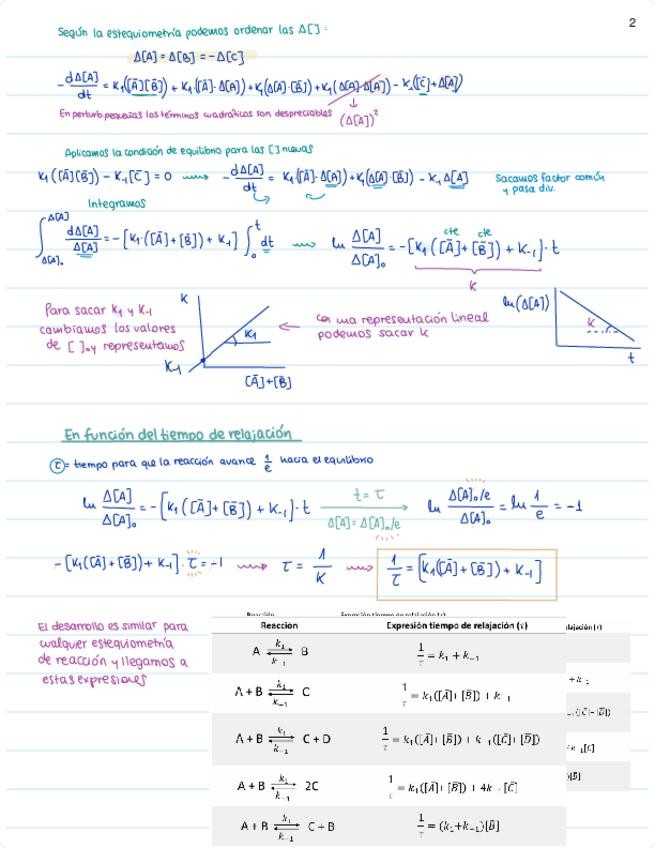 2
Según la estequiometría podemos ordenar las Δ[ ]:
Δ[A] = Δ[B] = -Δ[C]
-dΔ[A]/dt = K₁([Ā][B̄]) + K₁·([Ā]·Δ[A]) + K₁(Δ[A]·[B̄]) + K₁(Δ[A]·Δ[A]) - K₋₁([C̄]+Δ[A])
En perturb pequeñas los términos cuadráticos son despreciables (Δ[A])²
Aplicamos la condición de equilibrio para las [ ] nuevas
K₁([Ā][B̄]) - K₋₁[C̄] = 0 ⟿ -dΔ[A]/dt = K₁([Ā]·Δ[A]) + K₁(Δ[A]·[B̄]) - K₋₁Δ[A] Sacamos factor común y pasa div.
Integramos
∫_Δ[A]₀^Δ[A] dΔ[A]/Δ[A] = -[K₁·([Ā]+[B̄]) + K₋₁] ∫₀^t dt ⟿ ln Δ[A]/Δ[A]₀ = -[K₁([Ā]+[B̄]) + K₋₁]·t
cte cte
K
Para sacar K₁ y K₋₁
cambiamos los valores
de [ ]₀ y representamos
K
K₁
K₋₁
[Ā]+[B̄]
← con una representación lineal
podemos sacar K
ln(Δ[A])
K
t
En función del tiempo de relajación
τ = tiempo para que la reacción avance 1/e hacia el equilibrio
ln Δ[A]/Δ[A]₀ = -[K₁([Ā]+[B̄]) + K₋₁]·t t=τ → Δ[A]=Δ[A]₀/e ln Δ[A]₀/e / Δ[A]₀ = ln 1/e = -1
-[K₁([Ā]+[B̄]) + K₋₁]·τ = -1 ⟿ τ = 1/K ⟿ 1/τ = [K₁([Ā]+[B̄]) + K₋₁]
El desarrollo es similar para
cualquier estequiometría
de reacción y llegamos a
estas expresiones
Reacción Expresión tiempo de relajación (τ)
A ⇌ B 1/τ = k₁ + k₋₁
A + B ⇌ C 1/τ = k₁([Ā]+[B̄]) + k₋₁
A + B ⇌ C + D 1/τ = k₁([Ā]+[B̄]) + k₋₁([C̄]+[D̄])
A + B ⇌ 2C 1/τ = k₁([Ā]+[B̄]) + 4k₋₁[C̄]
A + B ⇌ C + B 1/τ = (k₁+k₋₁)[B̄]